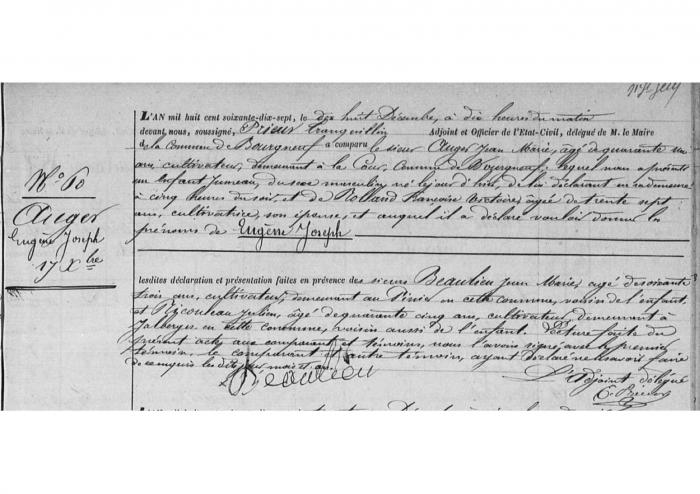 N° 60
Auger
Eugène Joseph
17 Xbre
L'AN mil huit cent soixante-dix-sept, le dix huit Décembre, à dix heures du matin
devant nous, soussigné, Prieur tranquillin Adjoint et Officier de l'Etat-Civil, délégué de M. le Maire
de la Commune de Bourgneuf a comparu le sieur Auger Jean Marie, âgé de quarante un
ans, cultivateur, demeurant à la Cour, Commune de Bourgneuf; lequel nous a présenté
un Enfant Jumeau, du sexe masculin né le jour d'hier, de lui déclarant en sa demeure
à cinq heures du soir, et de Rolland Françoise Victoire, âgée de trente sept
ans, cultivatrice, son épouse, et auquel il a déclaré vouloir donner les
prénoms de Eugène Joseph
lesdites déclaration et présentation faites en présence des sieurs Beaulieu Jean Marie, âgé de soixante
trois ans, cultivateur, demeurant au en cette commune, voisin de l'enfant,
et Julien, âgé de quarante cinq ans, cultivateur demeurant à
en cette commune, voisin aussi de l'enfant. Lecture faite du
présent acte aux comparant et témoins, nous l'avons signé avec le premier
témoin, le comparant et l'autre témoin, ayant déclaré ne savoir faire
de ce requis
Beaulieu
L'Adjoint délégué